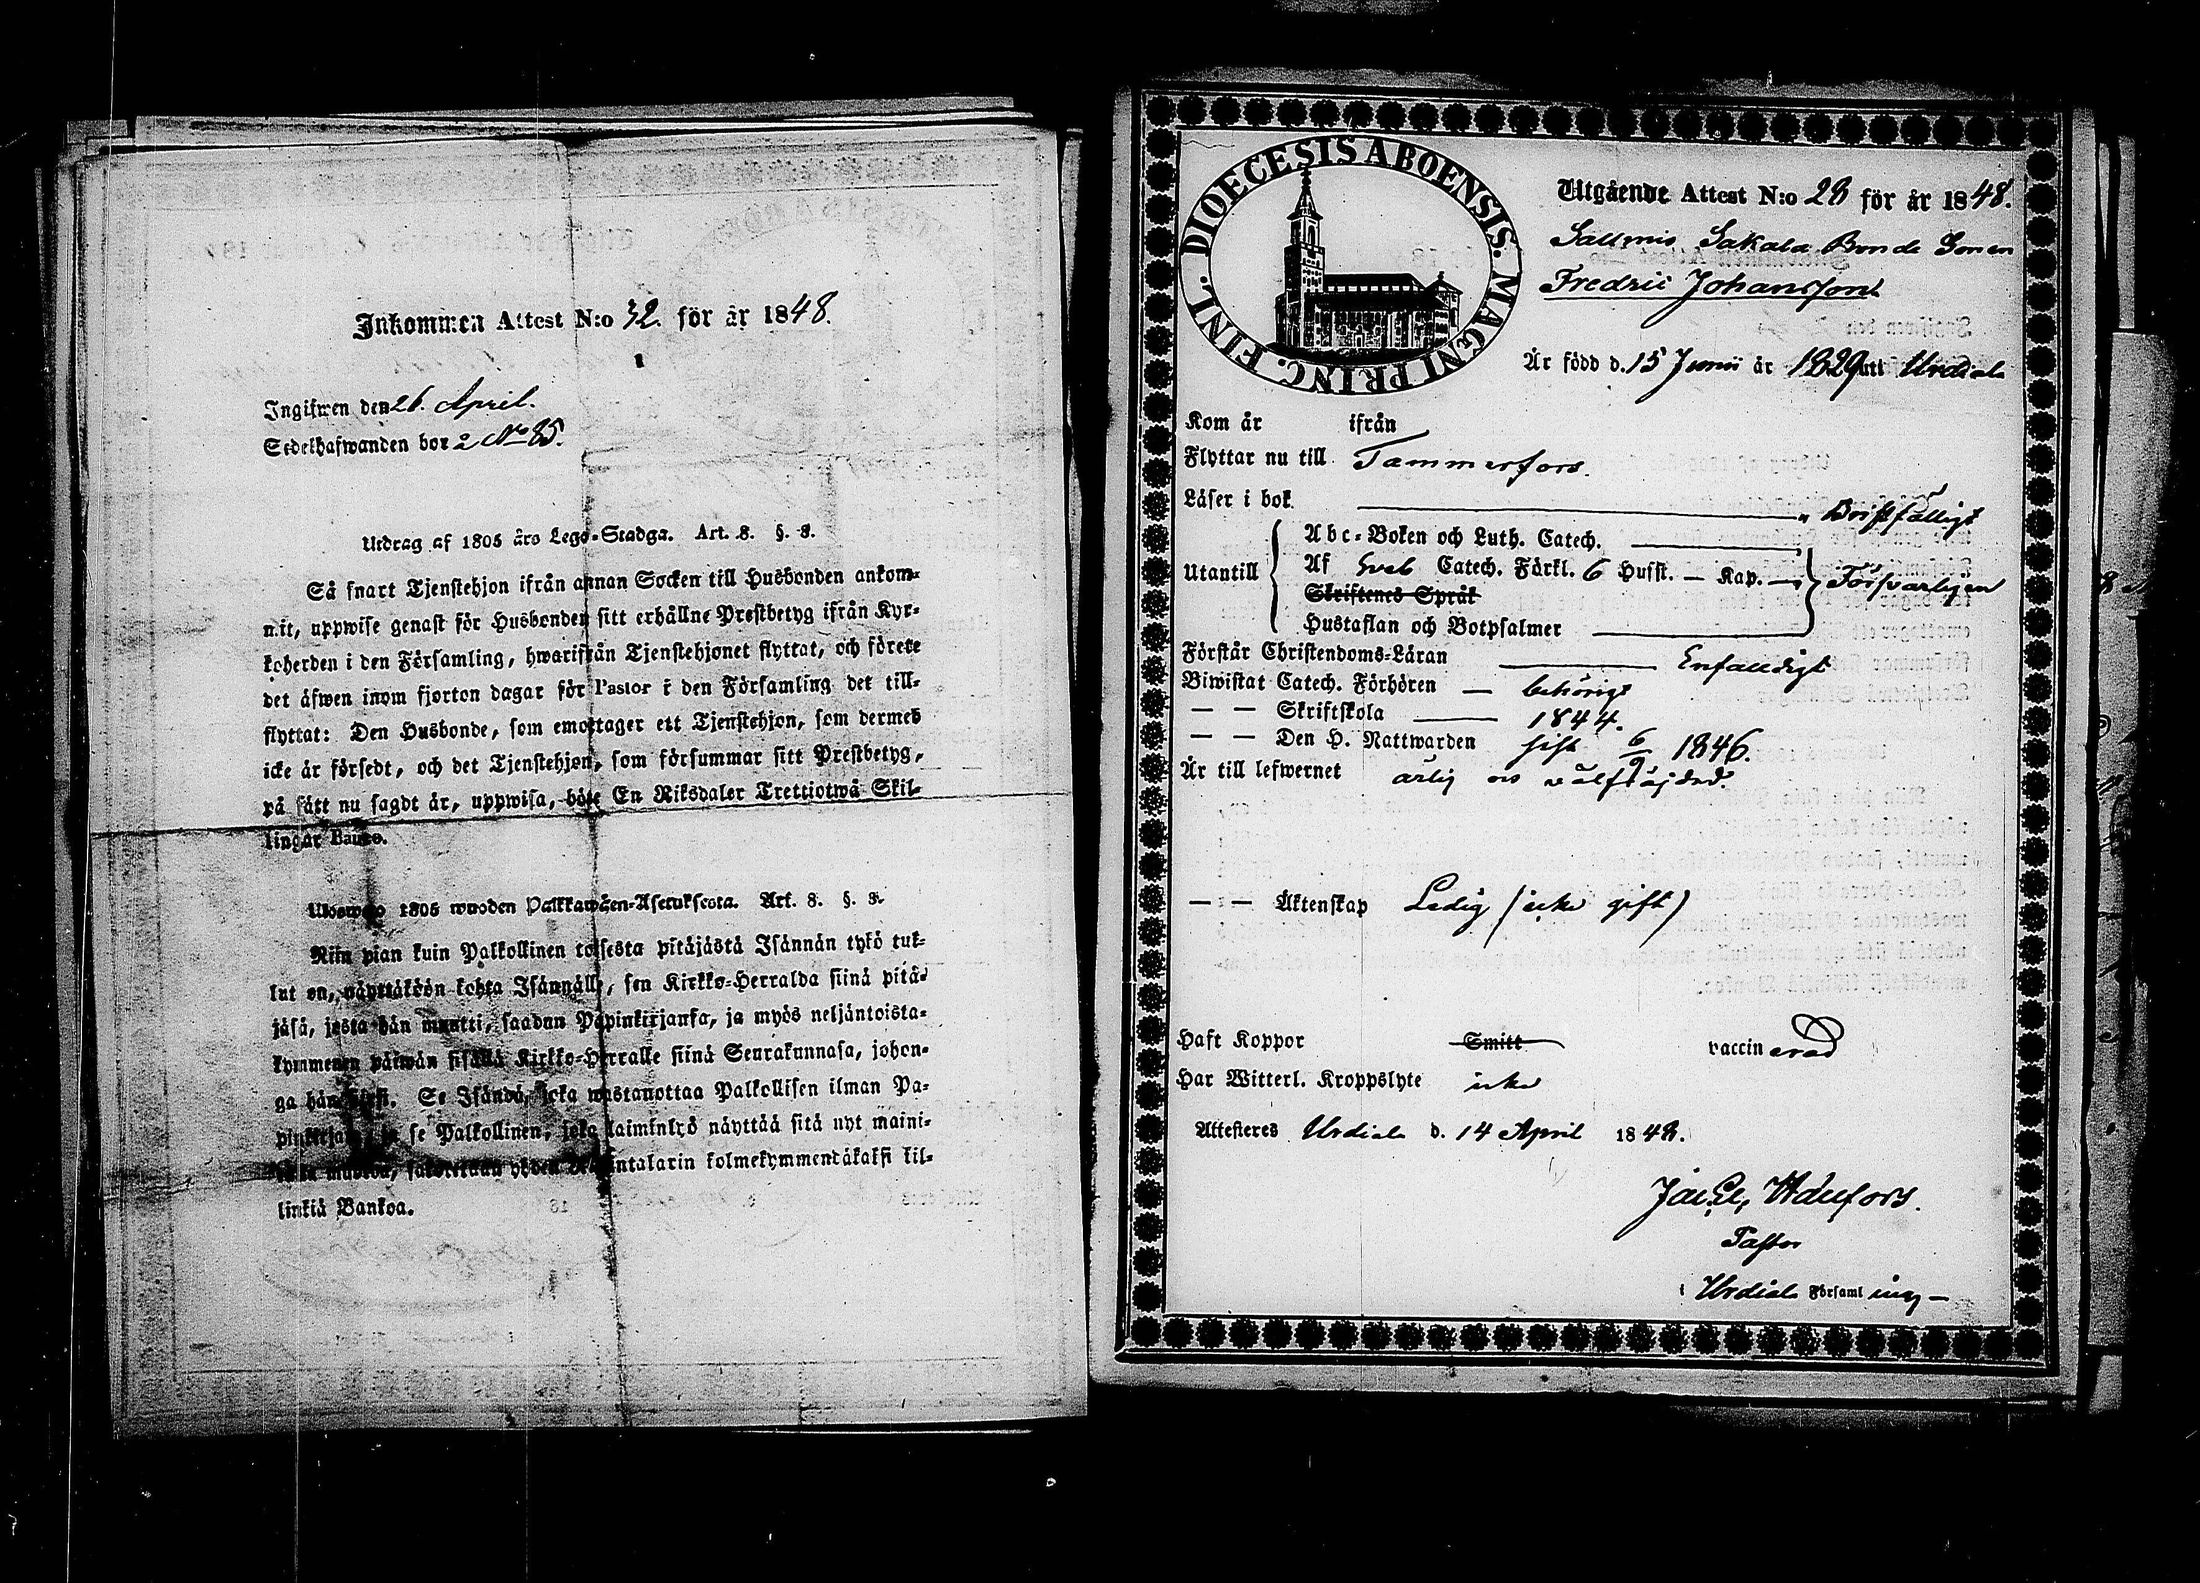 Inkommen Attest N:o 32. för år 1848.
Ingifwen den 26. April.
Sedelhafwanden bor å No 85.
Utdrag af 1805 års Lego-Stadga. Art. 8. §. 3.
Så snart Tjenstehjon ifrån annan Socken till Husbonden ankom-
mit, uppwise genast för Husbonden sitt erhållne Prestbetyg ifrån Kyr-
koherden i den Församling, hwarifrån Tjenstehjonet flyttat, och förete
det äfwen inom fjorton dagar för Pastor i den Församling det till-
flyttat: Den Husbonde, som emottager ett Tjenstehjon, som dermed
icke är försedt, och det Tjenstehjon, som försummar sitt Prestbetyg,
på sätt nu sagdt är, uppwisa, böte En Riksdaler Trettiotwå Skil-
lingar Banko.
Ulosweto 1805 wuoden Palkkawäen-Asetuksesta. Art. 8. §. 3.
Niin pian kuin Palkollinen toisesta pitäjästä Isännän tykö tul-
lut on, näyttäköön kohta Isännälle, sen Kirkko-Herralda siinä pitä-
jäsä, josta hän muutti, saadun Papinkirjansa, ja myös neljäntoista-
kymmenen päiwän sisällä Kirkko-Herralle siinä Seurakunnasa, johon-
ga hän. Se Isändä, joka wastanottaa Palkollisen ilman Pa-
se Palkollinen, joka laiminlyö näyttää sitä nyt maini-
muotoa, kolmekymmentäkaksi kil-
linkiä Bankoa.
DIOECESIS ABOENSIS. MAGNI PRINC. FINL.
Utgående Attest N:o 28 för år 1848.
Sakala Bonde Sonen
Fredric Johansson
Är född d. 15 Junii år 1829 uti Urdiala
Kom år ifrån
Flyttar nu till Tammerfors.
Läser i bok Bristfälligt
Abc-Boken och Luth. Catech.
Utantill Af Sveb Catech. Förkl. 6 Hufst. — Kap. — Försvarligen
Skriftenes Språk
Hustaflan och Botpsalmer
Förstår Christendoms-Läran Enfalldigt
Biwistat Catech. Förhören — behörigt
— — Skriftskola 1844.
— — Den H. Nattwarden sist 6/9 1846.
Är till lefwernet ärlig oc välfräjdad.
— — Äktenskap Ledig (icke gift)
Haft Koppor Smitt vaccinerad
Har Witterl. Kroppslyte icke
Attesteres Urdiala d. 14 April 1848.
Pastor
i Urdiala Församling —